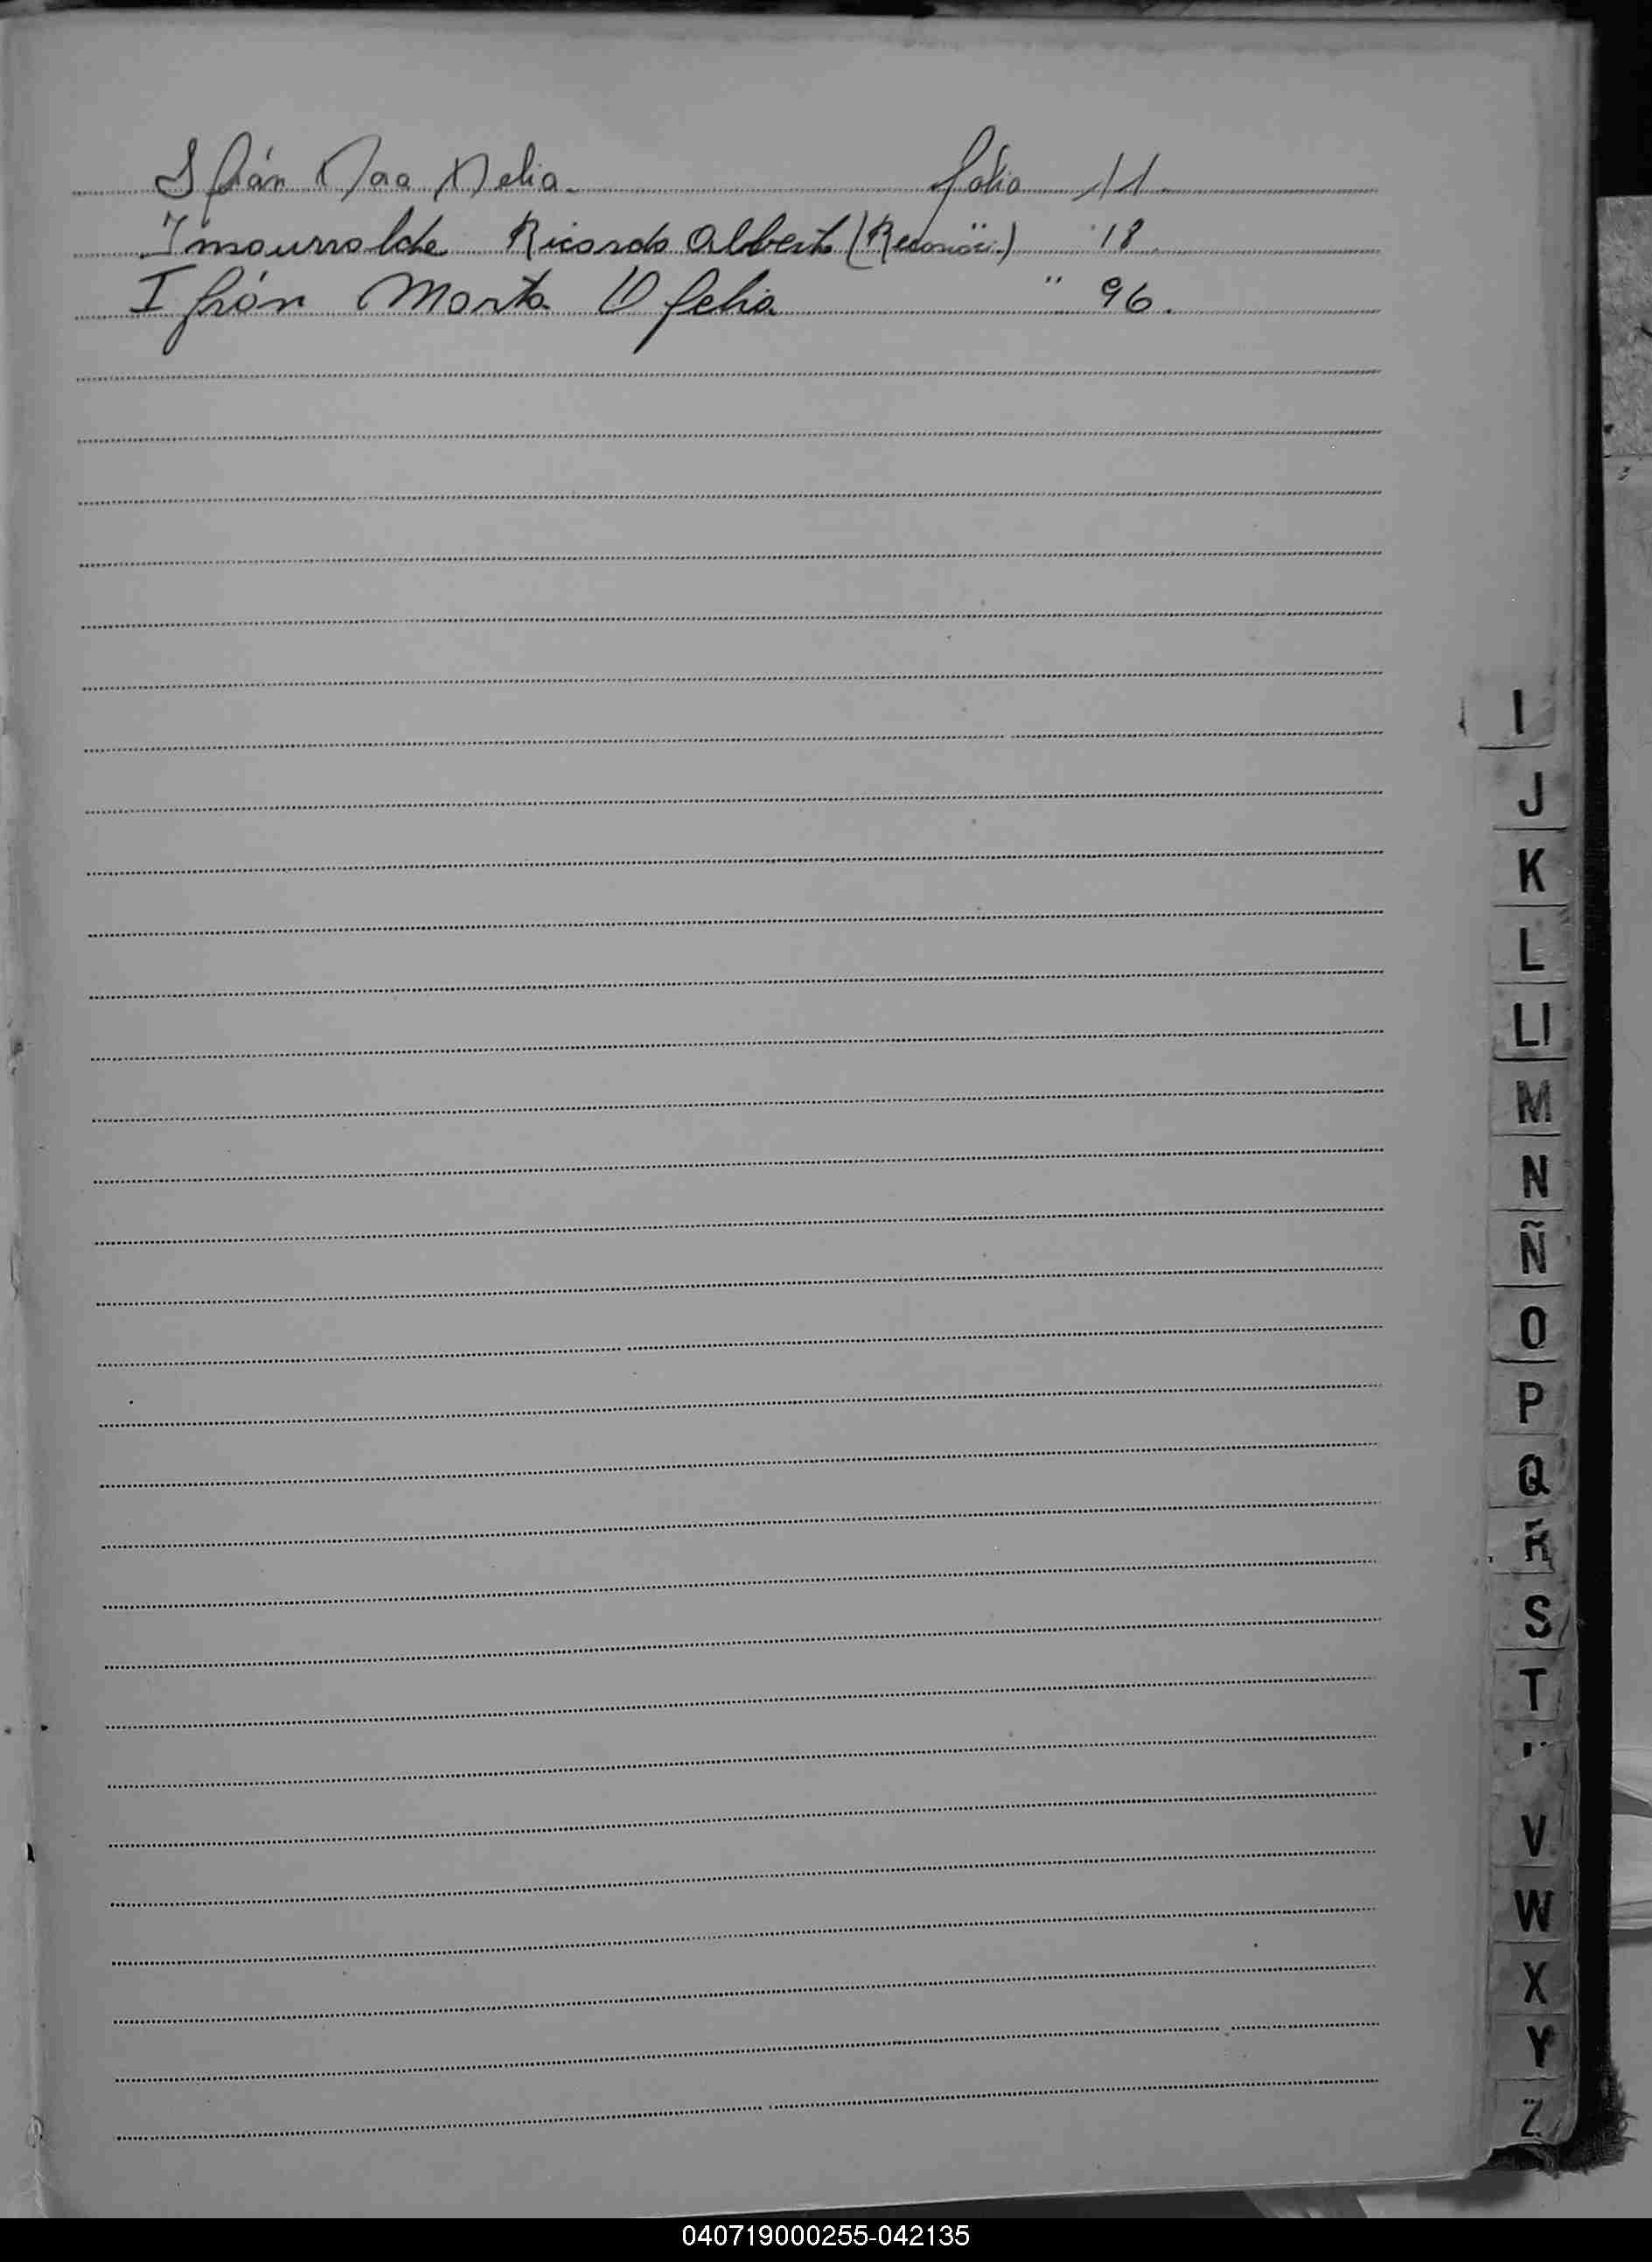 Ifrán Delia. folio 11
Insaurralde Ricardo Alberto 18
Ifrán Marta Ofelia " 96.
I
J
K
L
Ll
M
N
Ñ
O
P
Q
R
S
T
V
W
X
Y
Z
040719000255-042135